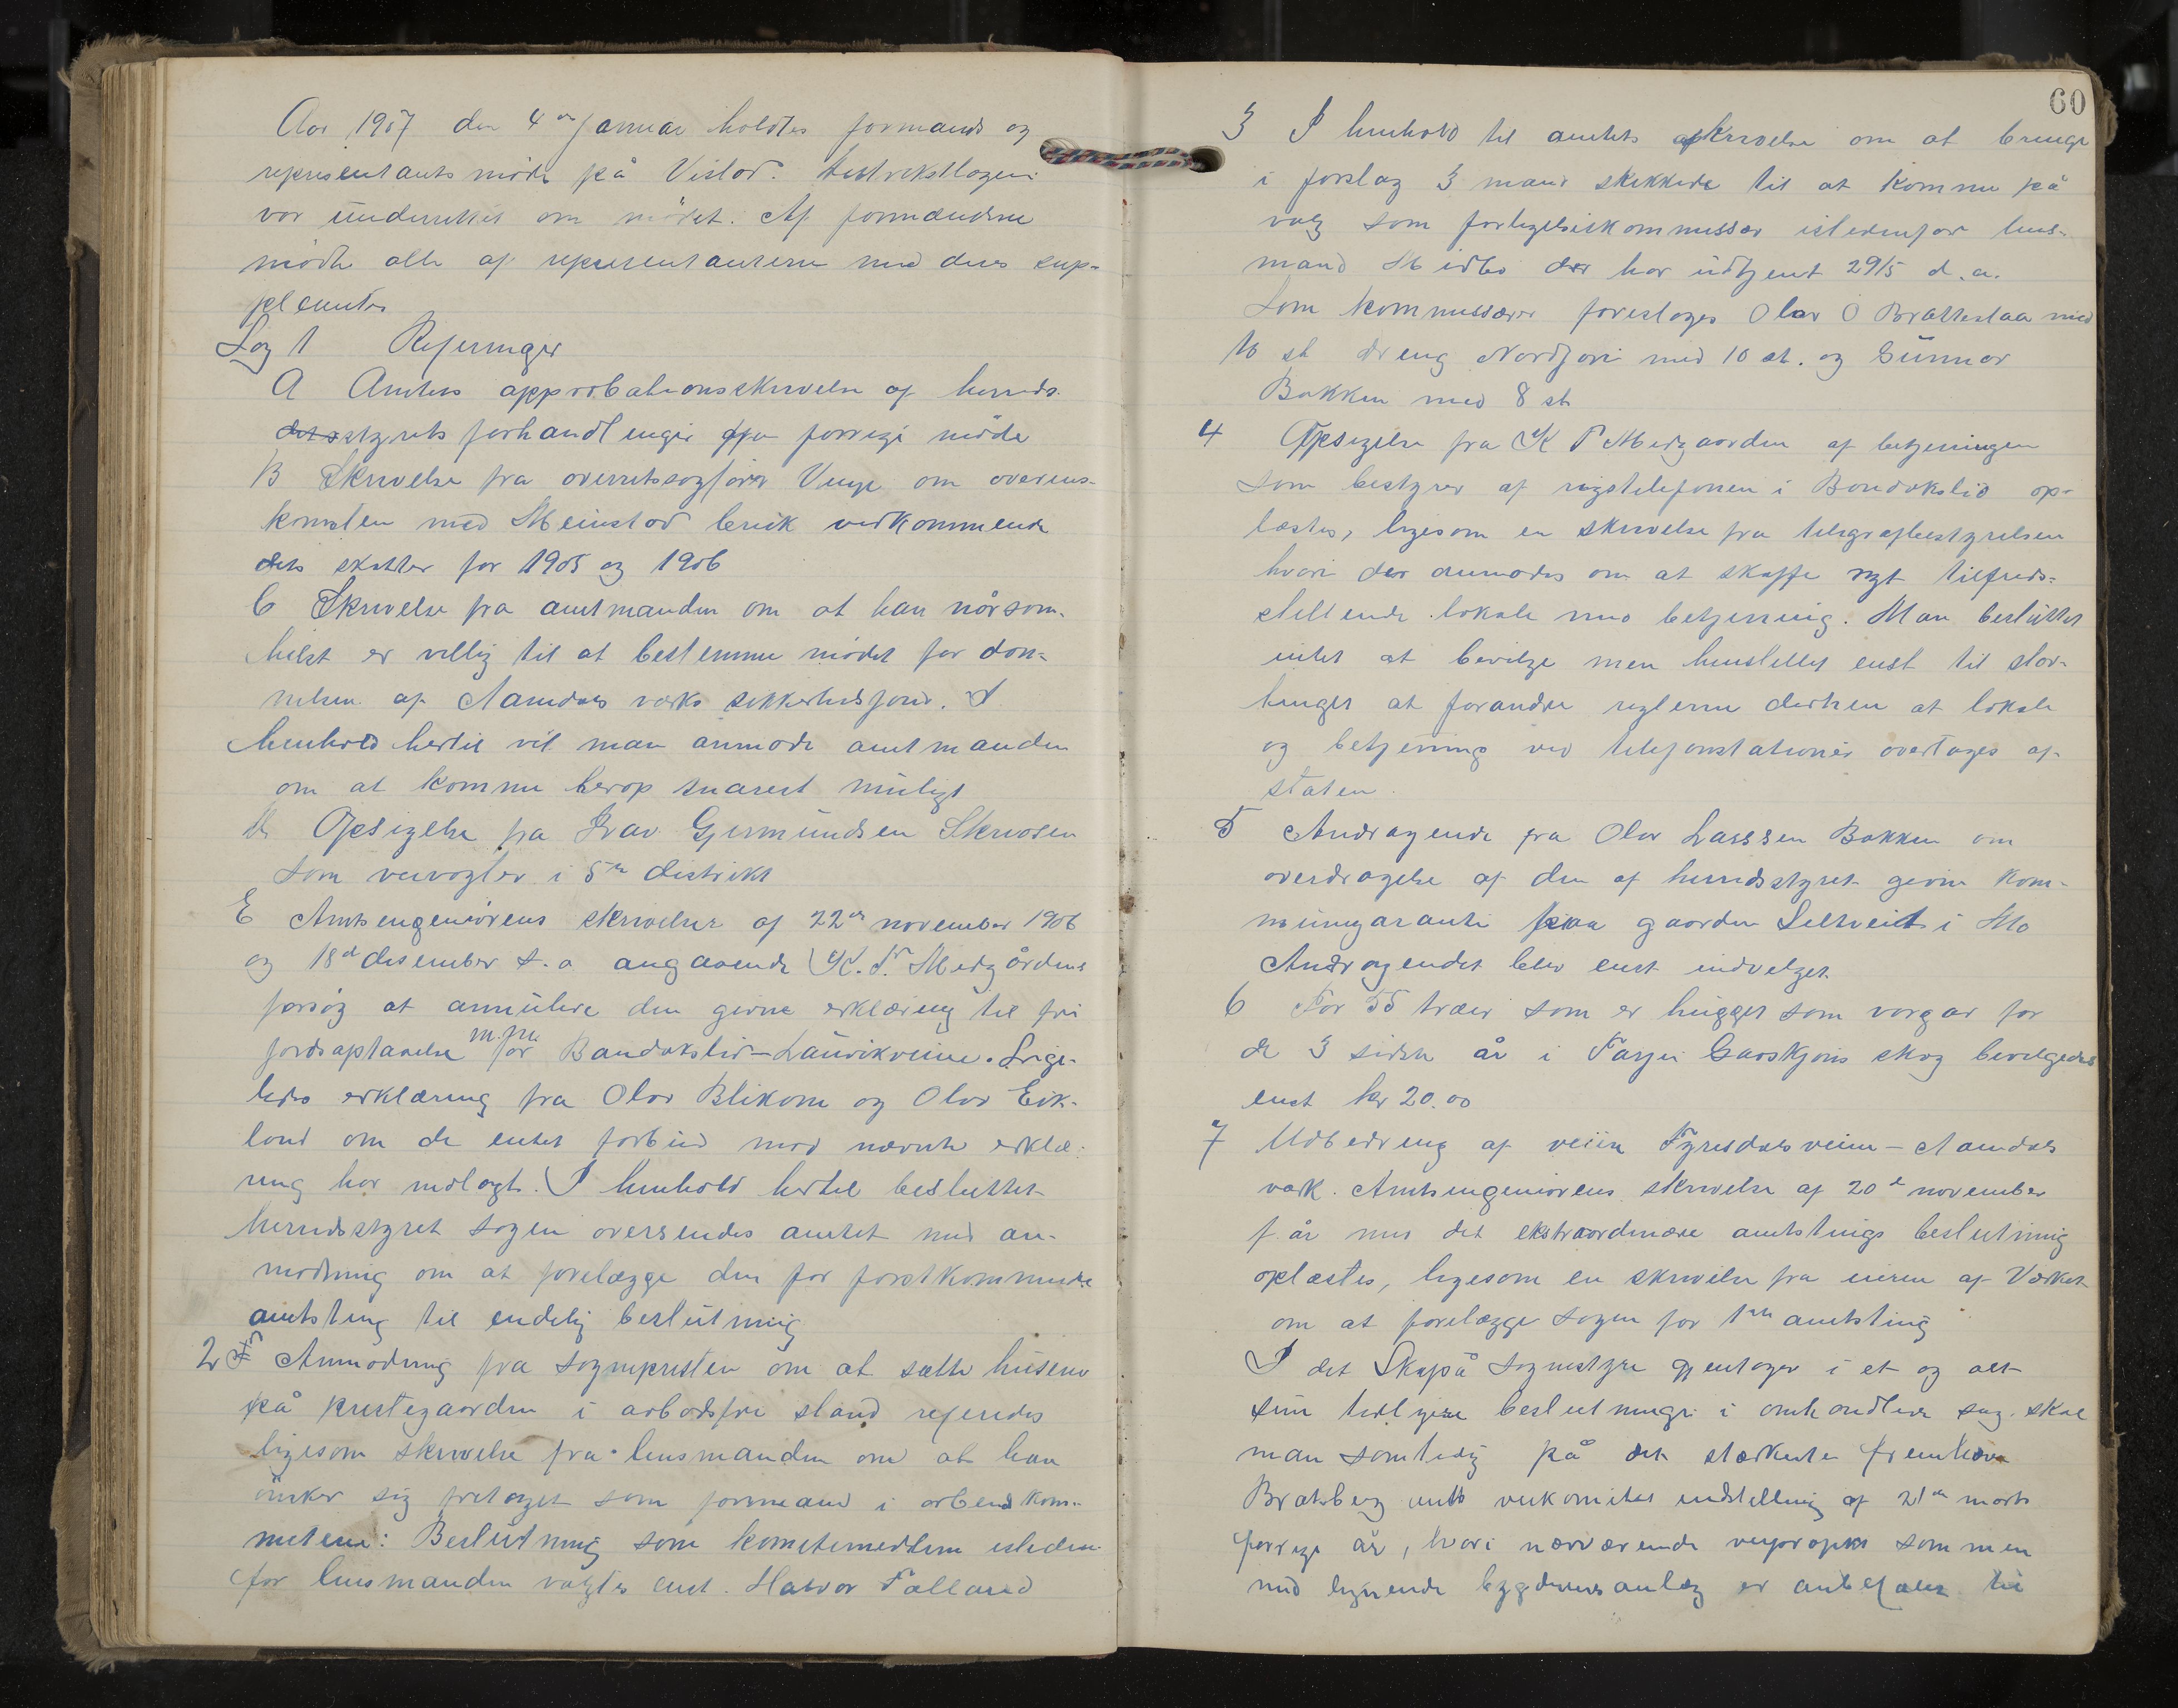 Aar 1907 den 4de januar holdtes formands og
representantsmöde på Vistad.
var underrettet om mödet. Af formændene
mödte alle af representanterne med deres sup-
pleanter
Sag 1 Referinger
A Amtets approbationsskrivelse af herreds-
dets styrets forhandlinger fra forrige möde
B Skrivelse fra overretssagförer Venge om overens-
komsten med Meinstad bruk vedkommende
dets skatter for 1905 og 1906
C Skrivelse fra amtmanden om at han nårsom-
helst er villig til at bestemme mödet for dan-
nelsen af Aamdals værks sikkerhedsfond. I
henhold hertil vil man anmode amtmanden
om at komme herop snarest muligt
D Opsigelse fra Ivar Gjermundsen Skrvosen
som veivogter i 5te distrikt
E Amtsengeniörens skrivelser af 22de november 1906
og 18de desember s. a angaaende K. T. Midgårdens
forsög at annulere den givne erklæring til fri
jordsaftaaelse m. m. for Bandakslid-Laurikveien. Lige-
ledes erklæring fra Olav Blikom og Olav Eik-
land om de intet forbud mod nævnte erklæ-
ring har nedlagt. I henhold hertil besluttet
herredsstyret sagen oversendes amtet med an-
modning om at forelægge den for förstkommende
amtsting til endelig beslutning
2 Anmodning fra sognepresten om at sætte husene
på prestegaarden i arbodsfri stand refereredes
ligesom skrivelse fra lensmanden om at han
önsker sig fritaget som formand i arbeidskom-
miteen: Beslutning som komitemedlem isteden-
for lensmanden valgtes enst. Halvor Felland
60
3 I henhold til amtets skrivelse om at bringe
i forslag 3 mænd skikkede til at komme på
valg som forligelseskommissær istedenfor lens-
mand Midbö der har udtjent 29/5 d. a.
Som kommissærer foresloges Olav O Brattestaa med
10 st Dreng Nordjore med 10 st. og Gunnar
Bakken med 8 st
4 Opsigelse fra K T Midgaarden af betjeningen
som bestyrer af rigstelefonen i Bandakslid op-
læstes, ligesom en skrivelse fra telegrafbestyrelsen
hvori der anmodes om at skaffe nyt tilfreds-
stillende lokale med betjening. Man besluttet
intet at bevilge men henstillet enst til stor-
tinget at forandre reglerne derhen at lokale
og betjening ved telefonstationer overtages af
staten.
5 Andragende fra Olav Larssen Bakken om
overdragelse af den af herredsstyret givne kom-
munegaranti paa gaarden Seltveit i Mo
Andragendet blev enst indvilget.
6 For 55 træer som er hugget som vargar for
de 3 sidste år i Tarjei Gaaskjöns skog bevilgedes
enst kr 20.00
7 Udbedring af veiin Fyresdalsveien - Aamdals
værk. Amtsengeniörens skrivelse af 20de november
f. år med det ekstraordinære amtstings beslutning
oplæstes, ligesom en skrivelse fra eieren af Verket
om at forelægge sagen for 1ste amtsting
I det Skafså sognestyre gjentager i et og alt
sine tidligere beslutninger i omhandlede sag, skal
man samtidig på det stærkeste fremhæve
Bratsberg amts veikomites indstilling af 21de marts
forrige år, hvori nærværende veiprojekt sammen
med lignende bygdeveisanlæg er anbefalet til